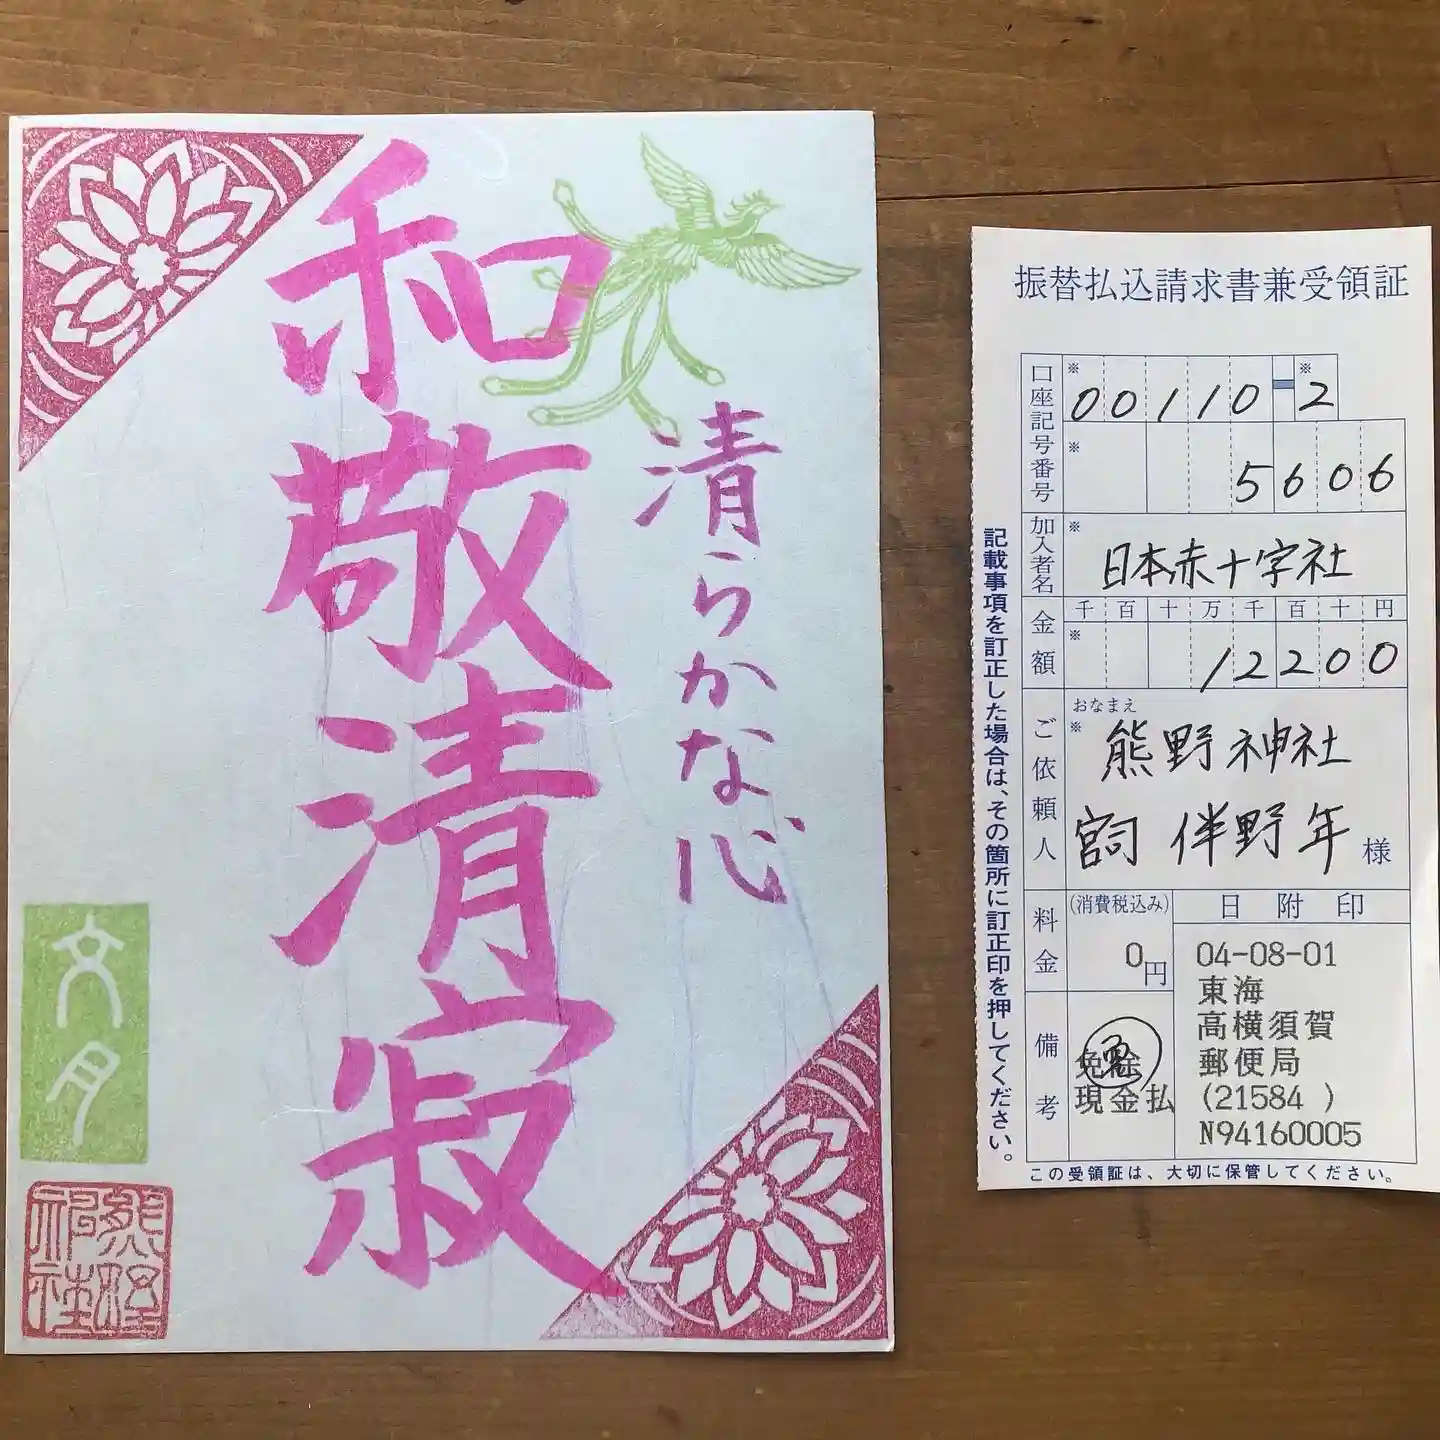 和敬清寂
清らかな心
文月
熊野神社
振替払込請求書兼受領証
口座記号番号
※ 00110-※2
※ 5606
加入者名
※ 日本赤十字社
金額
千百十万千百十円
※ 12200
ご依頼人
おなまえ
※ 熊野神社
宮司 伴野年 様
料金
(消費税込み)
0円
備考
免除
現金払
日附印
04-08-01
東海
高横須賀
郵便局
(21584 )
N94160005
記載事項を訂正した場合は、その箇所に訂正印を押してください。
この受領証は、大切に保管してください。